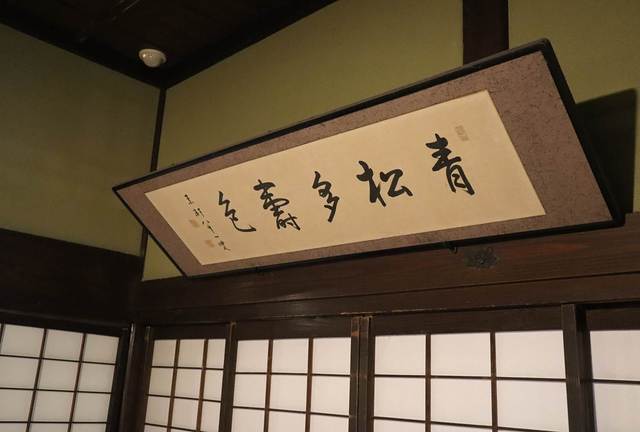 青松多壽色